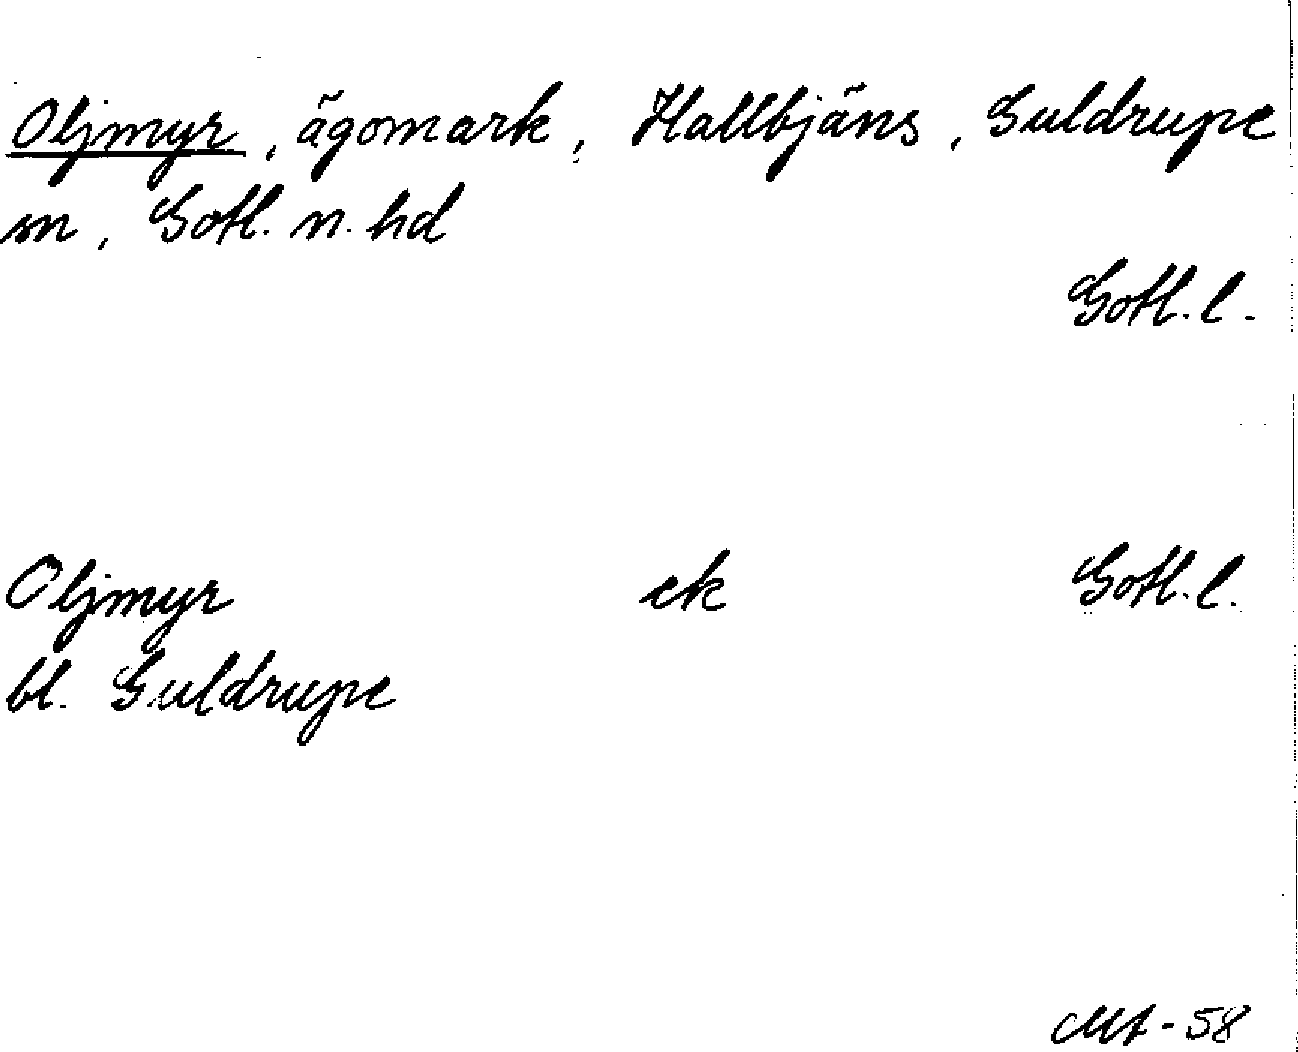 Oljmyr, ägomark, Hallbjäns, Guldrupe
sn, Gotl. n. hd
Gotl. l.
Oljmyr ek Gotl. l.
bl. Guldrupe
-58